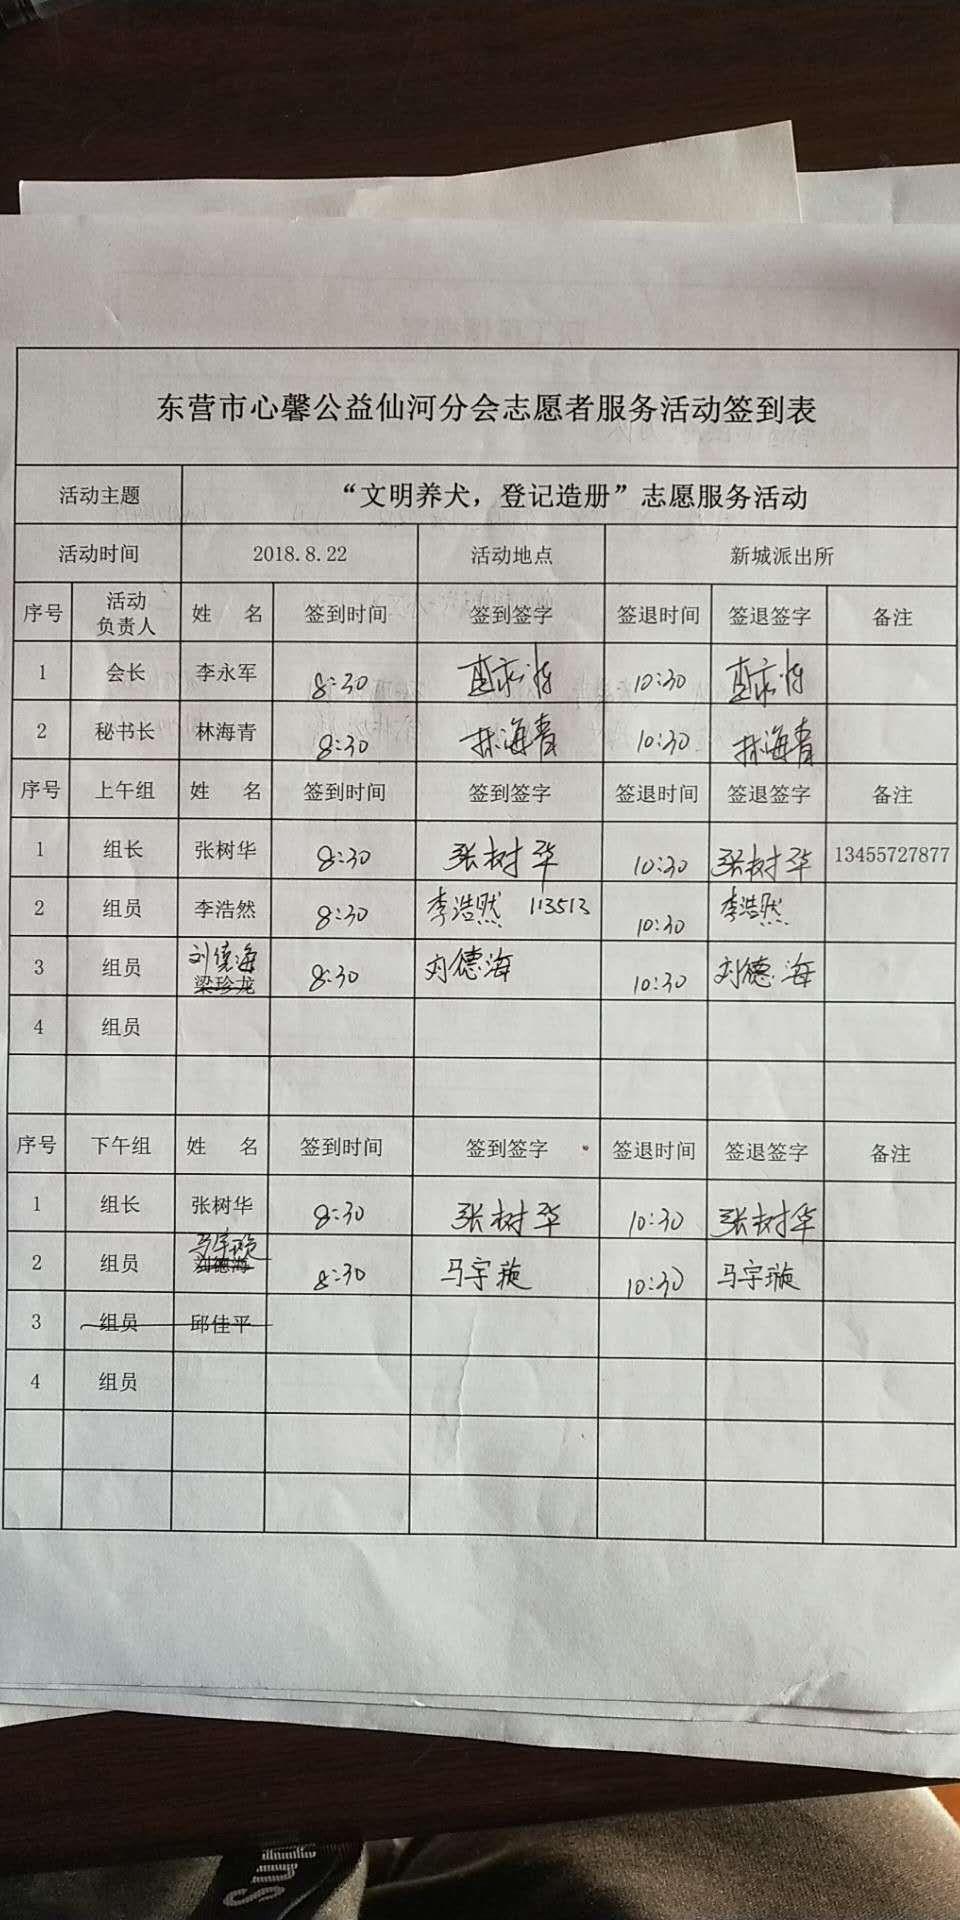 东营市心馨公益仙河分会志愿者服务活动签到表
活动主题 “文明养犬，登记造册”志愿服务活动
活动时间 2018.8.22 活动地点 新城派出所
序号 活动负责人 姓 名 签到时间 签到签字 签退时间 签退签字 备注
1 会长 李永军 8:30 10:30
2 秘书长 林海青 8:30 林海青 10:30 林海青
序号 上午组 姓 名 签到时间 签到签字 签退时间 签退签字 备注
1 组长 张树华 8:30 张树华 10:30 张树华 13455727877
2 组员 李浩然 8:30 李浩然 113513 10:30 李浩然
3 组员 刘德海 梁珍龙 8:30 刘德海 10:30 刘德海
4 组员
序号 下午组 姓 名 签到时间 签到签字 签退时间 签退签字 备注
1 组长 张树华 8:30 张树华 10:30 张树华
2 组员 马宇璇 刘德海 8:30 马宇璇 10:30 马宇璇
3 组员 邱佳平
4 组员